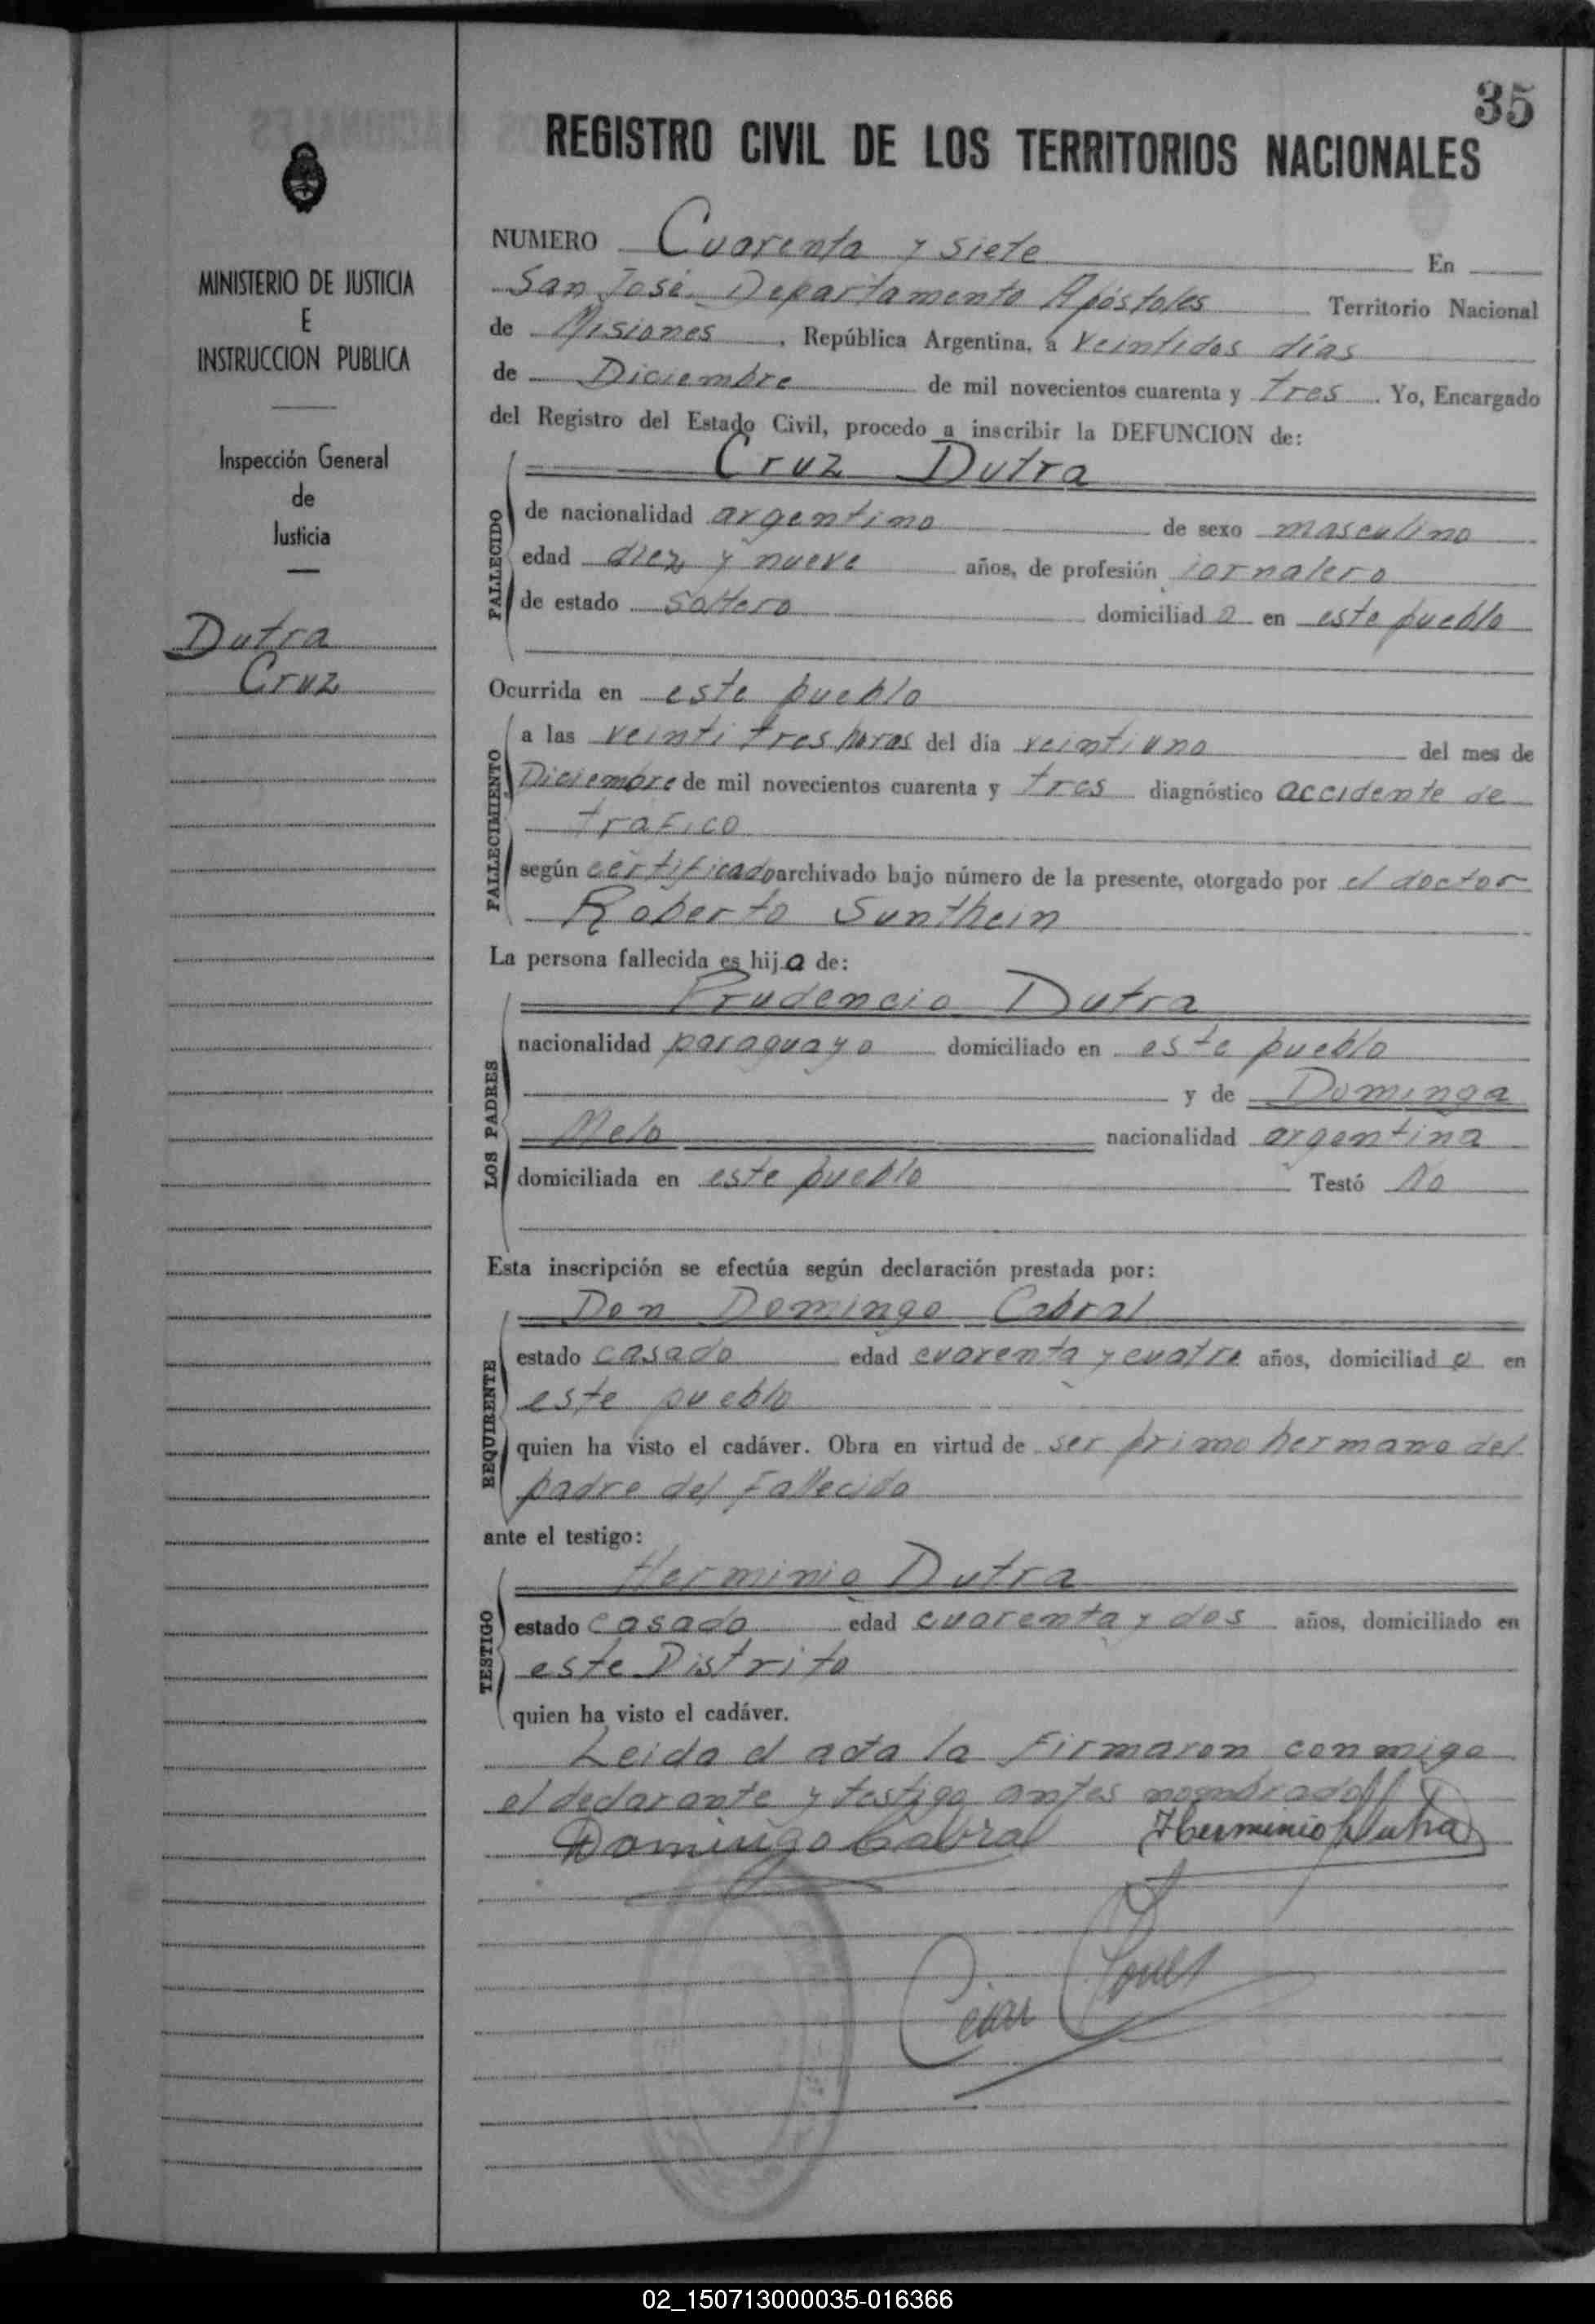 35
REGISTRO CIVIL DE LOS TERRITORIOS NACIONALES
MINISTERIO DE JUSTICIA
E
INSTRUCCION PUBLICA
Inspección General
de
Justicia
Dutra
Cruz
NUMERO Cuarenta y siete En
San José Departamento Apóstoles Territorio Nacional
de Misiones, República Argentina, a veintidos días
de Diciembre de mil novecientos cuarenta y tres. Yo, Encargado
del Registro del Estado Civil, procedo a inscribir la DEFUNCION de:
Cruz Dutra
FALLECIDO
de nacionalidad argentino de sexo masculino
edad diez y nueve años, de profesión jornalero
de estado soltero domiciliado en este pueblo
Ocurrida en este pueblo
FALLECIMIENTO
a las veinti tres horas del día veintiuno del mes de
Diciembre de mil novecientos cuarenta y tres diagnóstico accidente de
trafico
según certificado archivado bajo número de la presente, otorgado por el doctor
Roberto Sunthein
La persona fallecida es hijo de:
LOS PADRES
Prudencio Dutra
nacionalidad paraguayo domiciliado en este pueblo
y de Dominga
Melo nacionalidad argentina
domiciliada en este pueblo Testó No
Esta inscripción se efectúa según declaración prestada por:
REQUIRENTE
Don Domingo Cabral
estado casado edad cuarenta y cuatro años, domiciliado en
este pueblo
quien ha visto el cadáver. Obra en virtud de ser primo hermano del
padre del fallecido
ante el testigo:
TESTIGO
Herminio Dutra
estado casado edad cuarenta y dos años, domiciliado en
este Distrito
quien ha visto el cadáver.
Leida el acta la firmaron conmigo
el declarante y testigo antes nombrado
Domingo Cabral Herminio Dutra
02_150713000035-016366